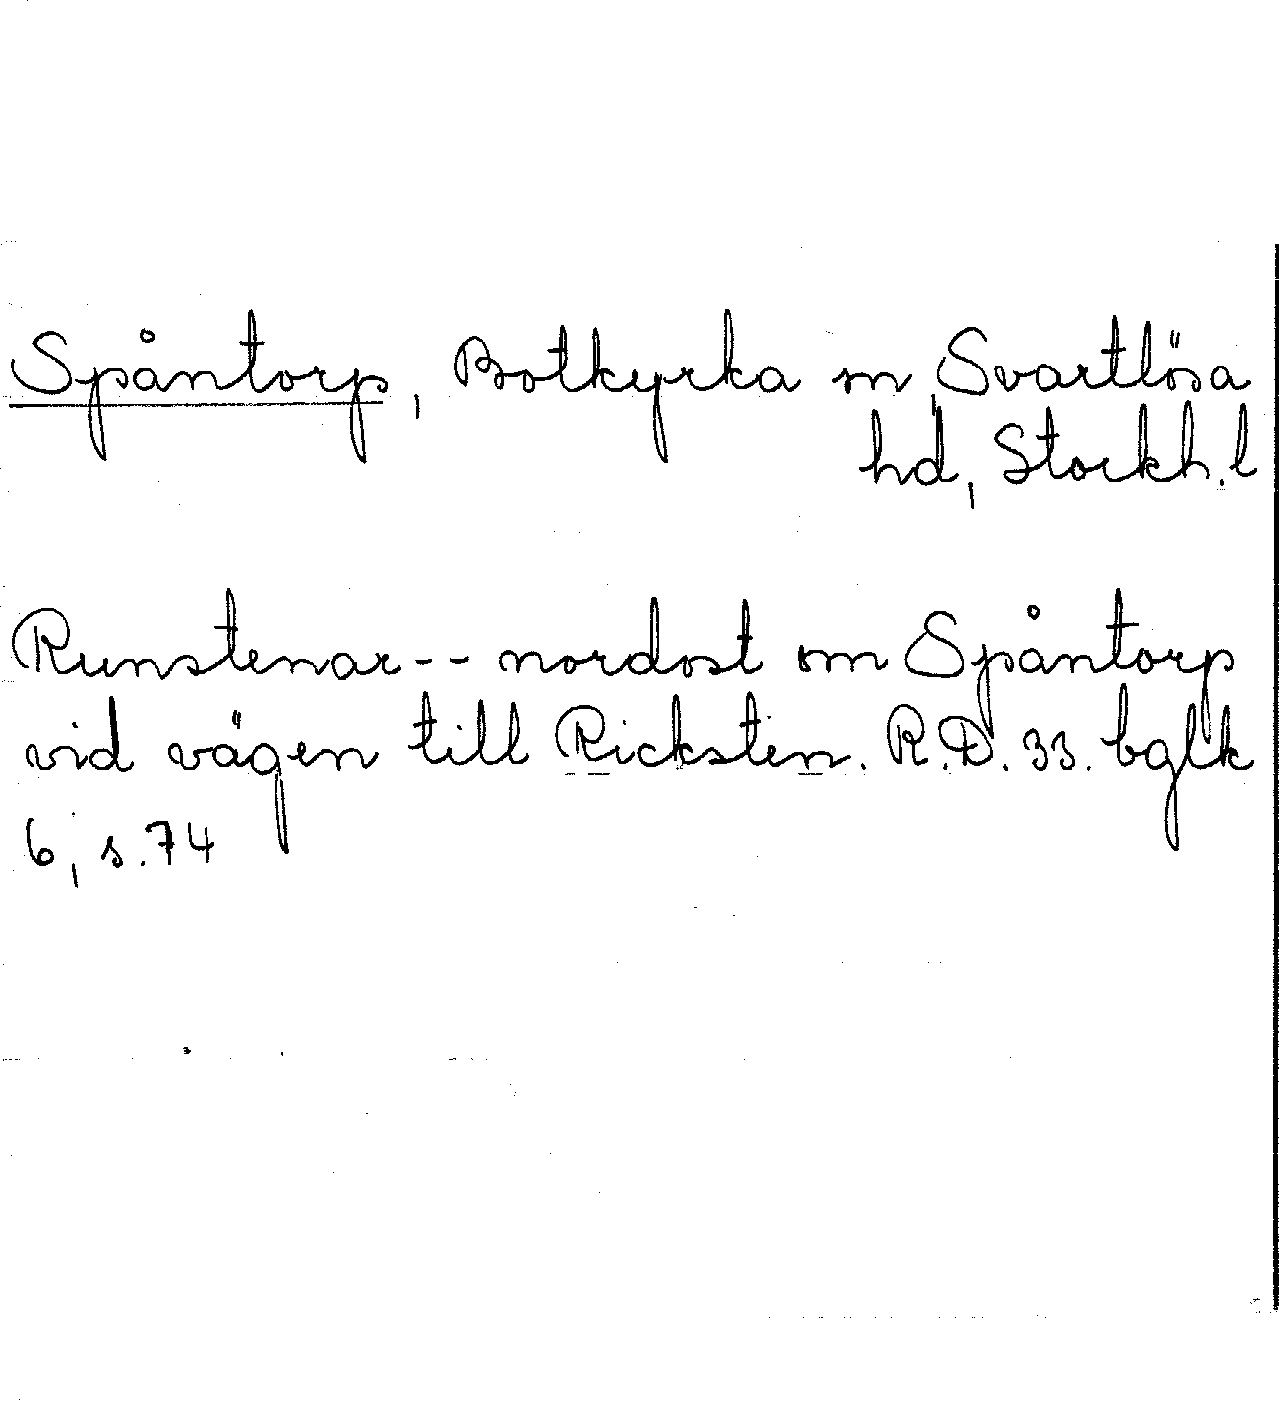 Spåntorp, Botkyrka sn, Svartlösa
hd, Stockh.l
Runstenar -- nordost om Spåntorp
vid vägen till Ricksten. R.D. 33. bglk
6, s. 74